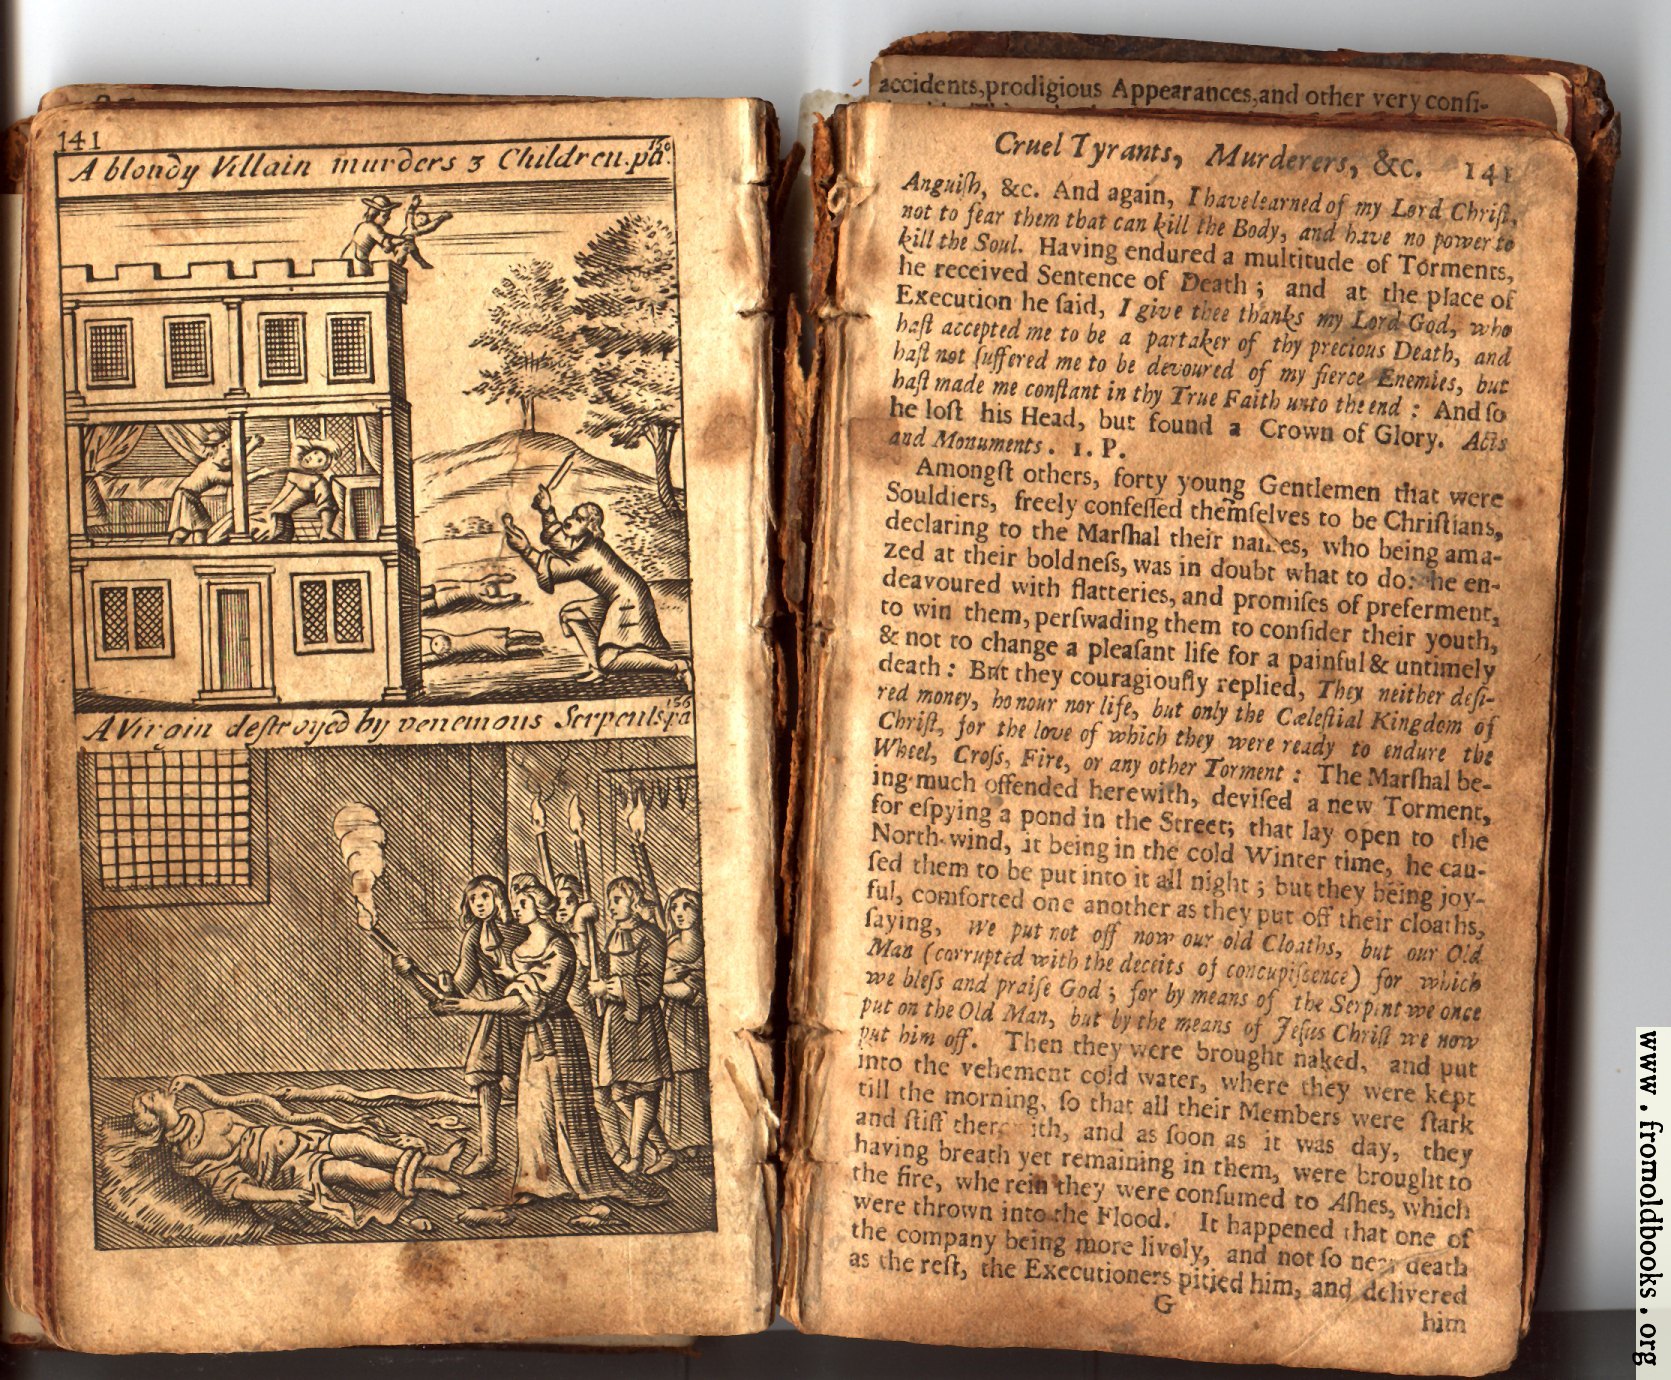 141
A bloody Villain murders 3 Children. pa. 150
A Virgin destroyed by venemous Serpents. pa 156
accidents, prodigious Appearances, and other very conſi-
Cruel Tyrants, Murderers, &c. 141
Anguiſh, &c. And again, I have learned of my Lord Chriſt,
not to fear them that can kill the Body, and have no power to
kill the Soul. Having endured a multitude of Torments,
he received Sentence of Death ; and at the place of
Execution he ſaid, I give thee thanks my Lord God, who
haſt accepted me to be a partaker of thy precious Death, and
haſt not ſuffered me to be devoured of my fierce Enemies, but
haſt made me conſtant in thy True Faith unto the end : And ſo
he loſt his Head, but found a Crown of Glory. Acts
and Monuments. 1. P.
Amongſt others, forty young Gentlemen that were
Souldiers, freely confeſſed themſelves to be Chriſtians,
declaring to the Marſhal their names, who being ama-
zed at their boldneſs, was in doubt what to do: he en-
deavoured with flatteries, and promiſes of preferment,
to win them, perſwading them to conſider their youth,
& not to change a pleaſant life for a painful & untimely
death : But they couragiouſly replied, They neither deſi-
red money, honour nor life, but only the Cæleſtial Kingdom of
Chriſt, for the love of which they were ready to endure the
Wheel, Croſs, Fire, or any other Torment : The Marſhal be-
ing much offended herewith, deviſed a new Torment,
for eſpying a pond in the Street; that lay open to the
North-wind, it being in the cold Winter time, he cau-
ſed them to be put into it all night ; but they being joy-
ful, comforted one another as they put off their cloaths,
ſaying, We put not off now our old Cloaths, but our Old
Man (corrupted with the deceits of concupiſcence) for which
we bleſs and praiſe God ; for by means of the Serpent we once
put on the Old Man, but by the means of Jeſus Chriſt we now
put him off. Then they were brought naked, and put
into the vehement cold water, where they were kept
till the morning, ſo that all their Members were ſtark
and ſtiff therewith, and as ſoon as it was day, they
having breath yet remaining in them, were brought to
the fire, wherein they were conſumed to Aſhes, which
were thrown into the Flood. It happened that one of
the company being more lively, and not ſo near death
as the reſt, the Executioners pitied him, and delivered
G
him
www.fromoldbooks.org